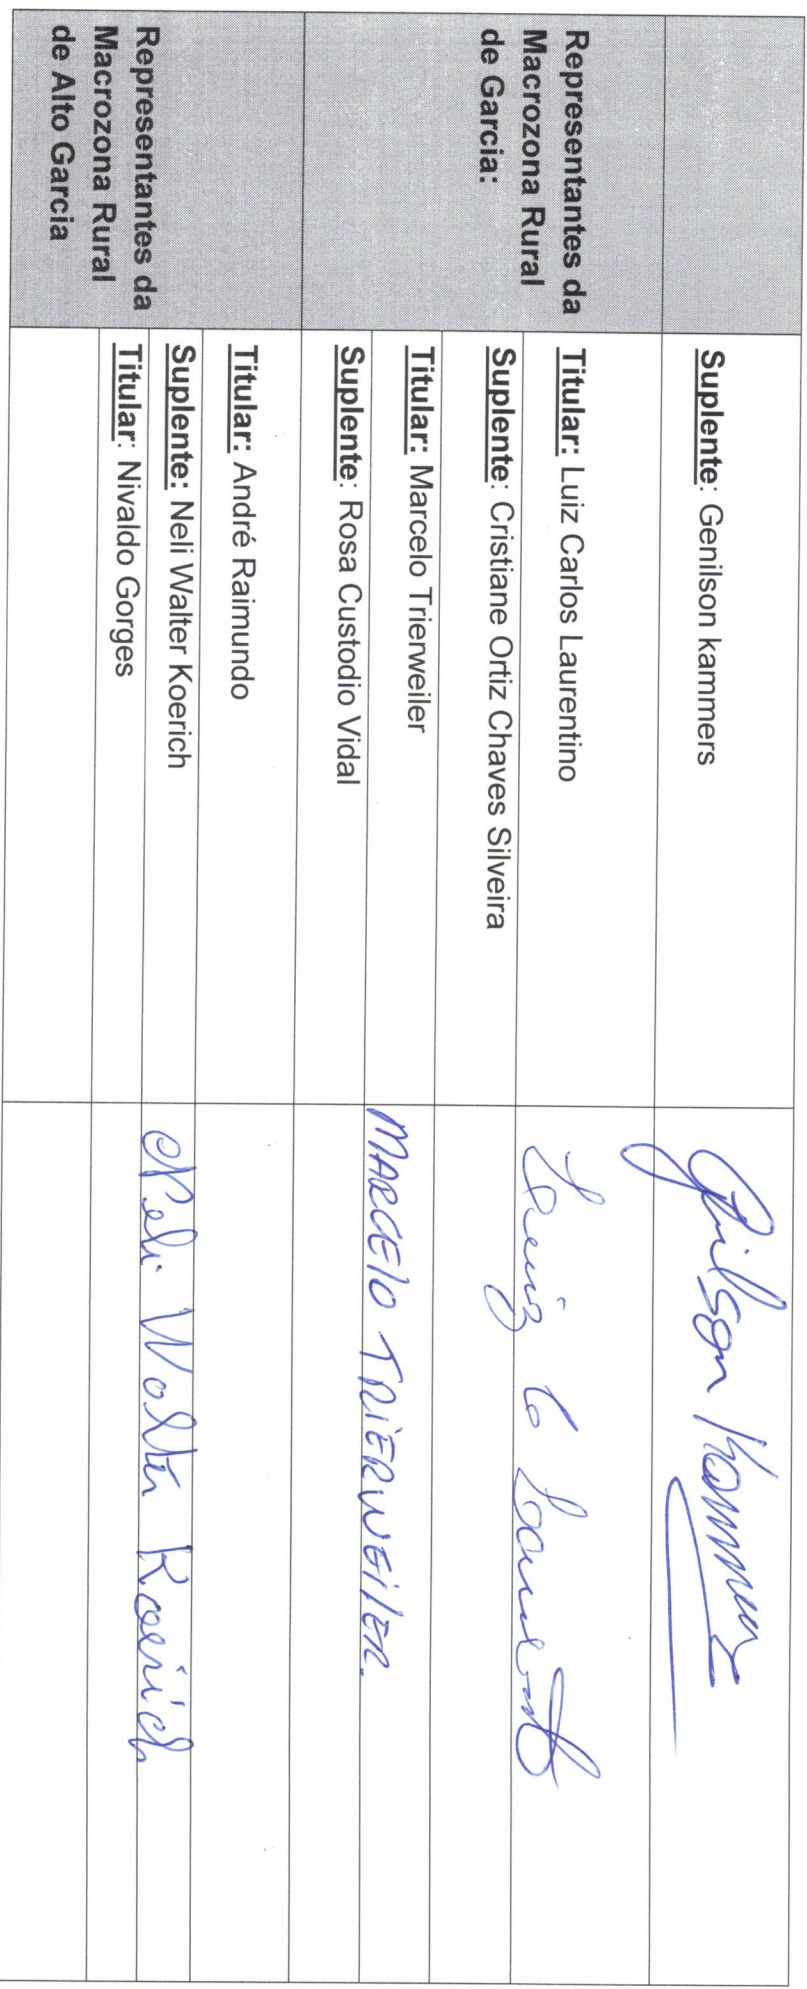 Suplente: Genilson kammers
Gnilson Kammers
Representantes da
Macrozona Rural
de Garcia:
Titular: Luiz Carlos Laurentino
Luiz C Laurent
Suplente: Cristiane Ortiz Chaves Silveira
Titular: Marcelo Trierweiler
MARCElO TRiERWEilER.
Suplente: Rosa Custodio Vidal
Representantes da
Macrozona Rural
de Alto Garcia
Titular: André Raimundo
Suplente: Neli Walter Koerich
Neli Walter Koerich
Titular: Nivaldo Gorges